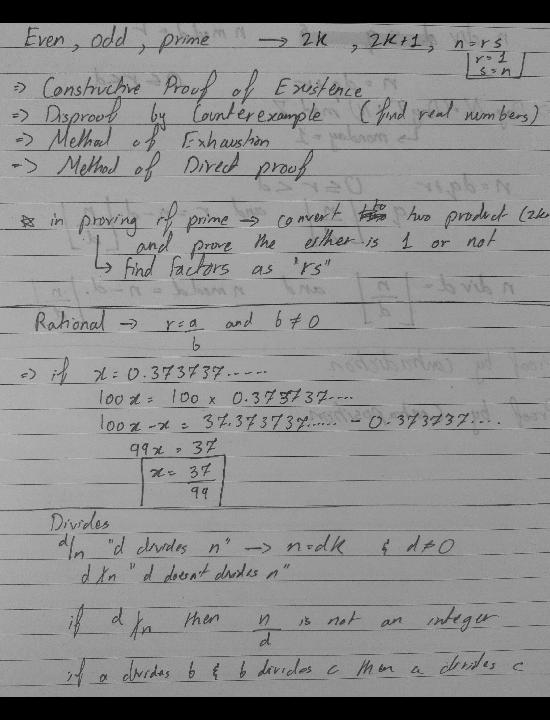 Even, odd, prime → 2k, 2k+1, n=rs
r=1
s=n
=> Constructive Proof of Existence
=> Disproof by Counterexample (find real numbers)
=> Method of Exhaustion
=> Method of Direct proof
* in proving if prime → convert to two product (2k
and prove the either is 1 or not
↳ find factors as "rs"
Rational → r = a/b and b ≠ 0
=> if x = 0.373737.....
100x = 100 x 0.373737....
100x - x = 37.373737...... - 0.373737....
99x = 37
x = 37/99
Divides
d/n "d divides n" → n=dk & d≠0
d∤n "d doesn't divides n"
if d∤n then n/d is not an integer
if a divides b & b divides c then a divides c